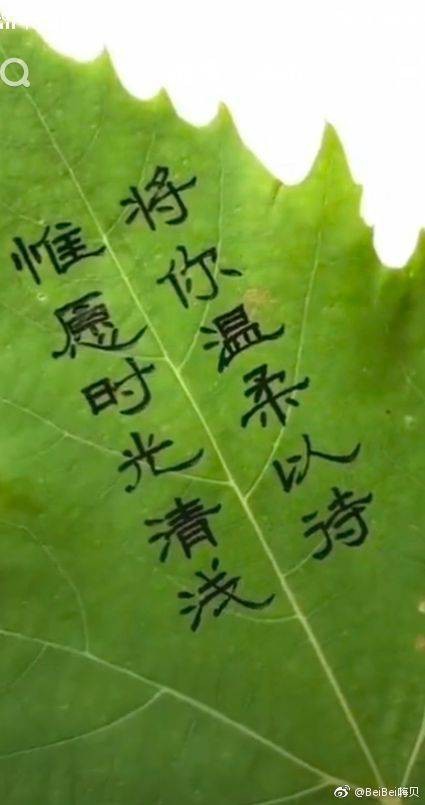 惟愿时光清浅
将你温柔以待
@BeiBei嗨贝